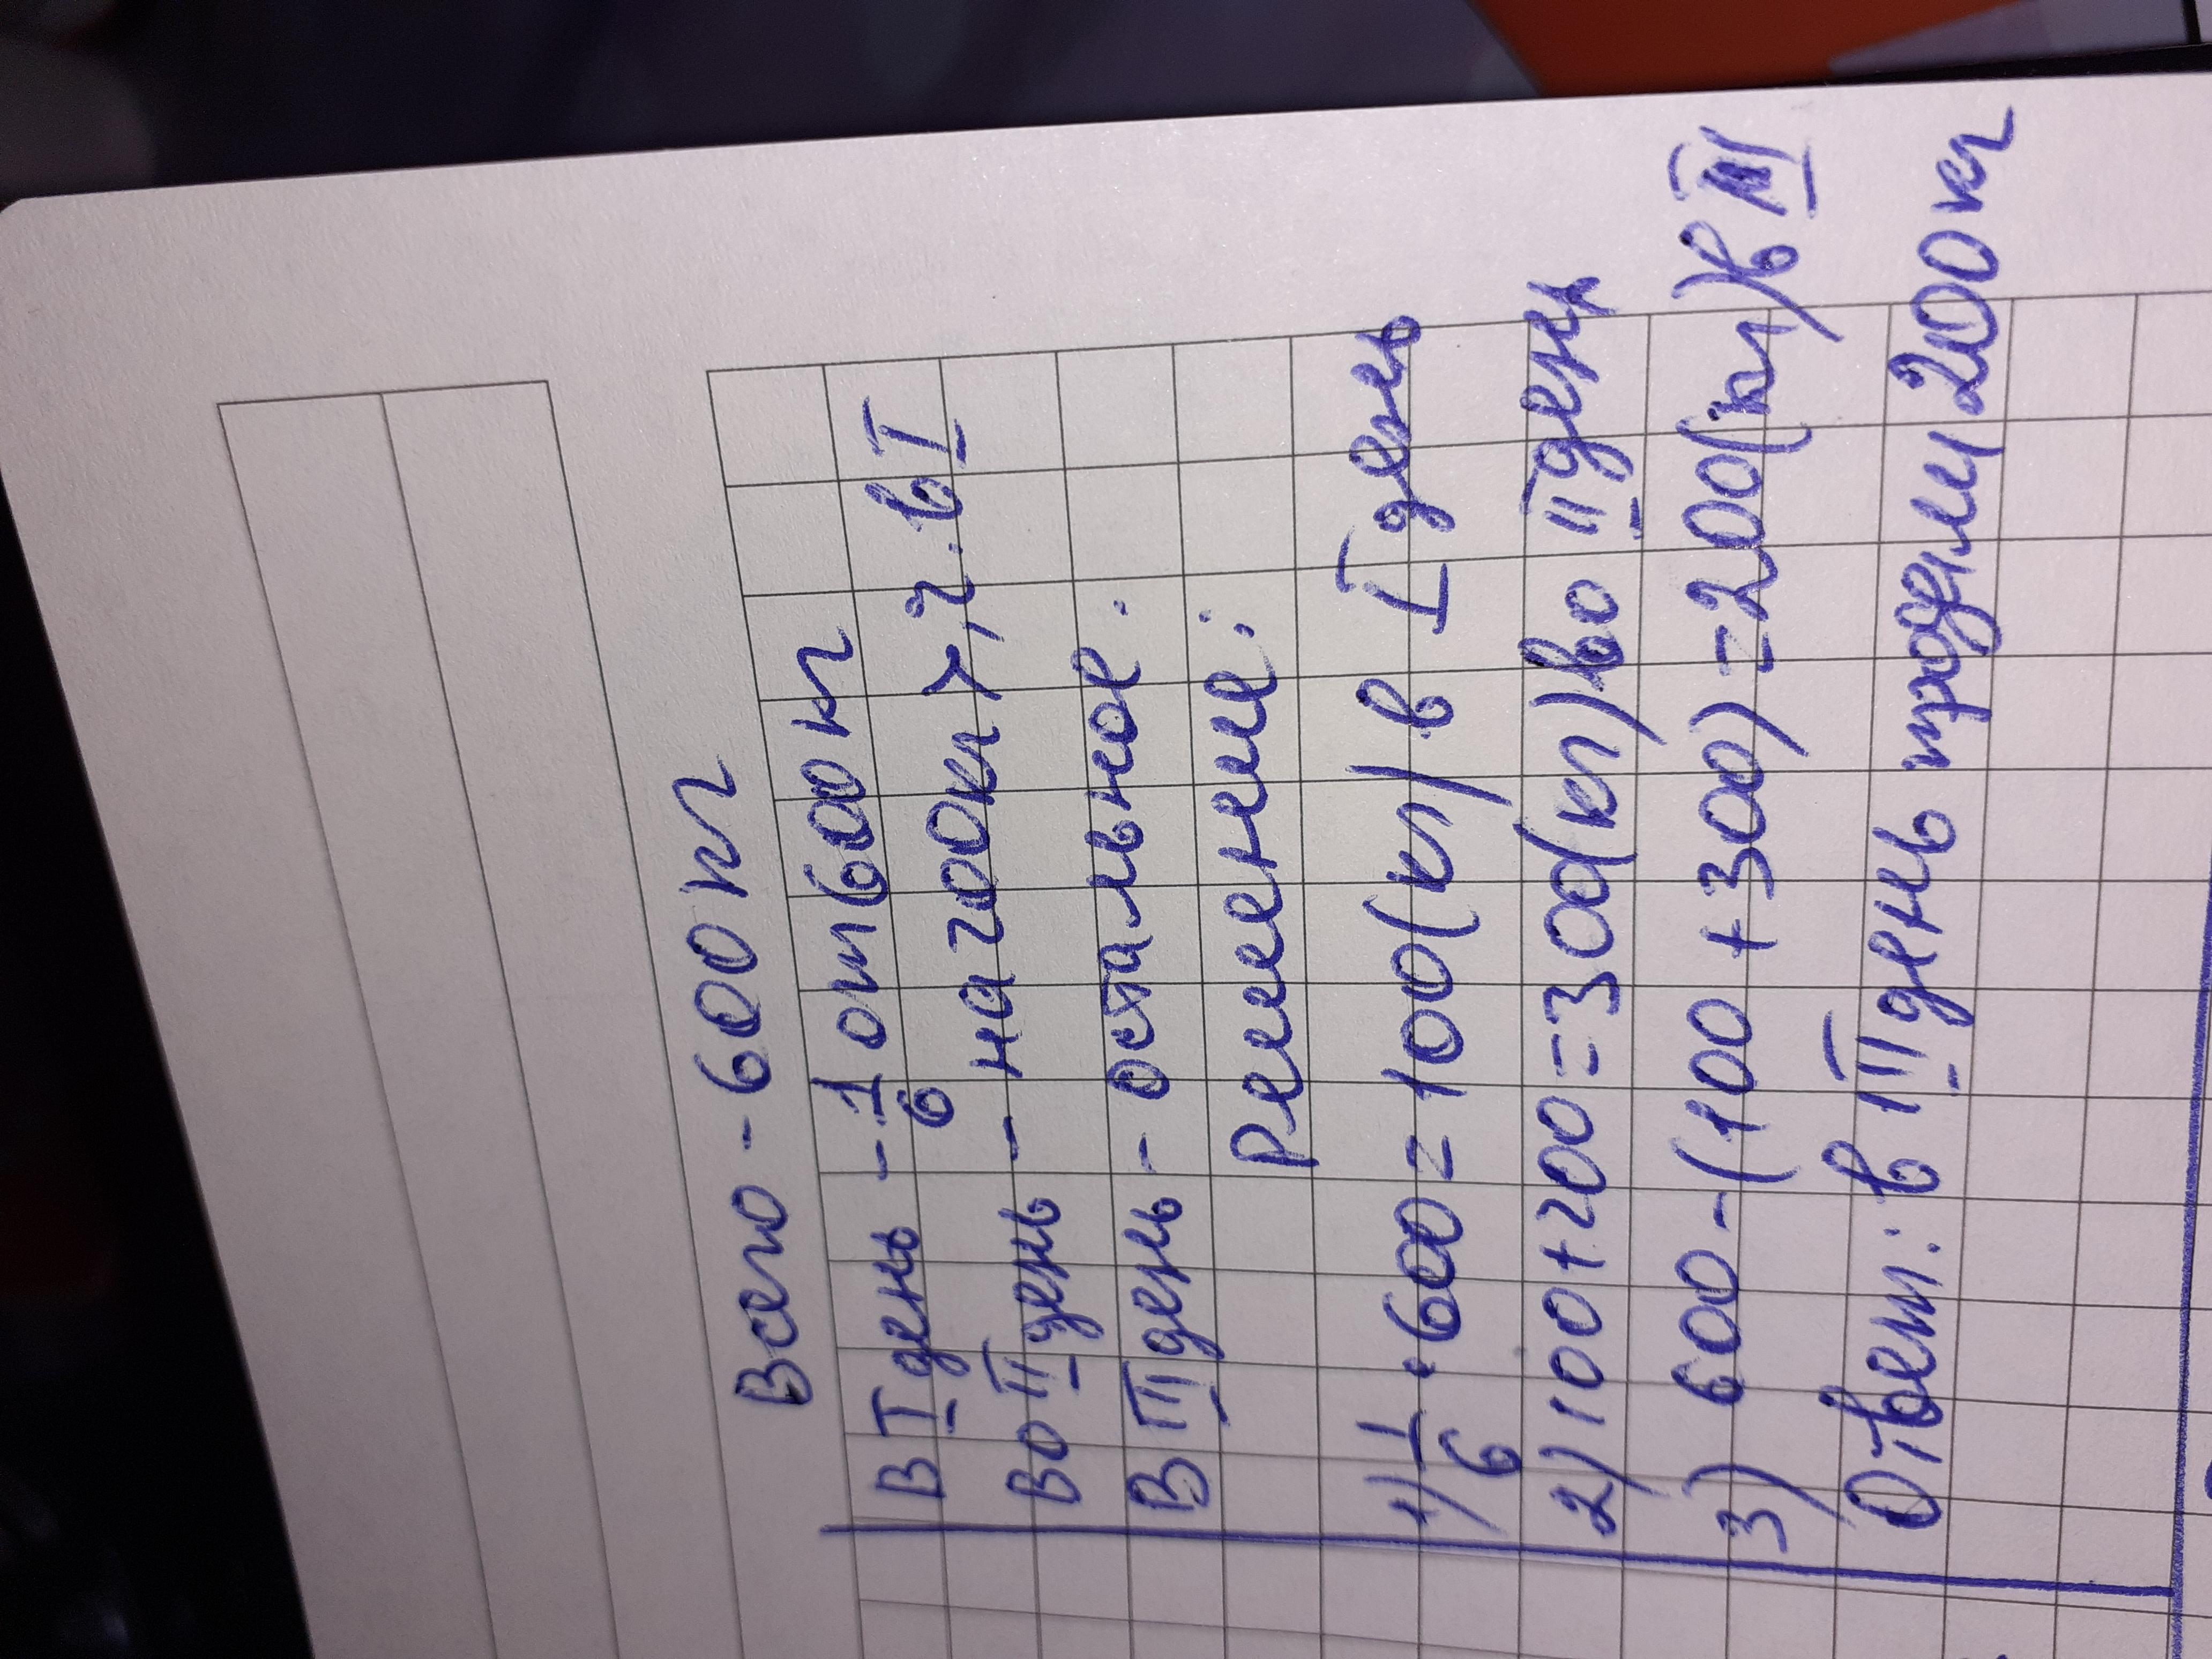 Всего - 600 кг
В I день - 1/6 от 600 кг
Во II день - на 200 кг >, ч. в I
В III день - остальное.
Решение:
1) 1/6 · 600 = 100 (кг) в I день
2) 100 + 200 = 300 (кг) во II день
3) 600 - (100 + 300) = 200 (кг) в III
Ответ: в III день продали 200 кг